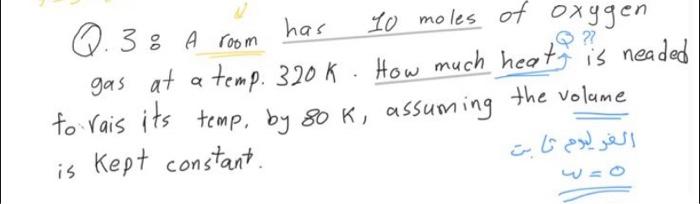 Q.3: A room has 10 moles of oxygen
Q ??
gas at a temp. 320 K. How much heat is neaded
to rais its temp. by 80 K, assuming the volume
is Kept constant.
الفوليوم ثابت
w = 0